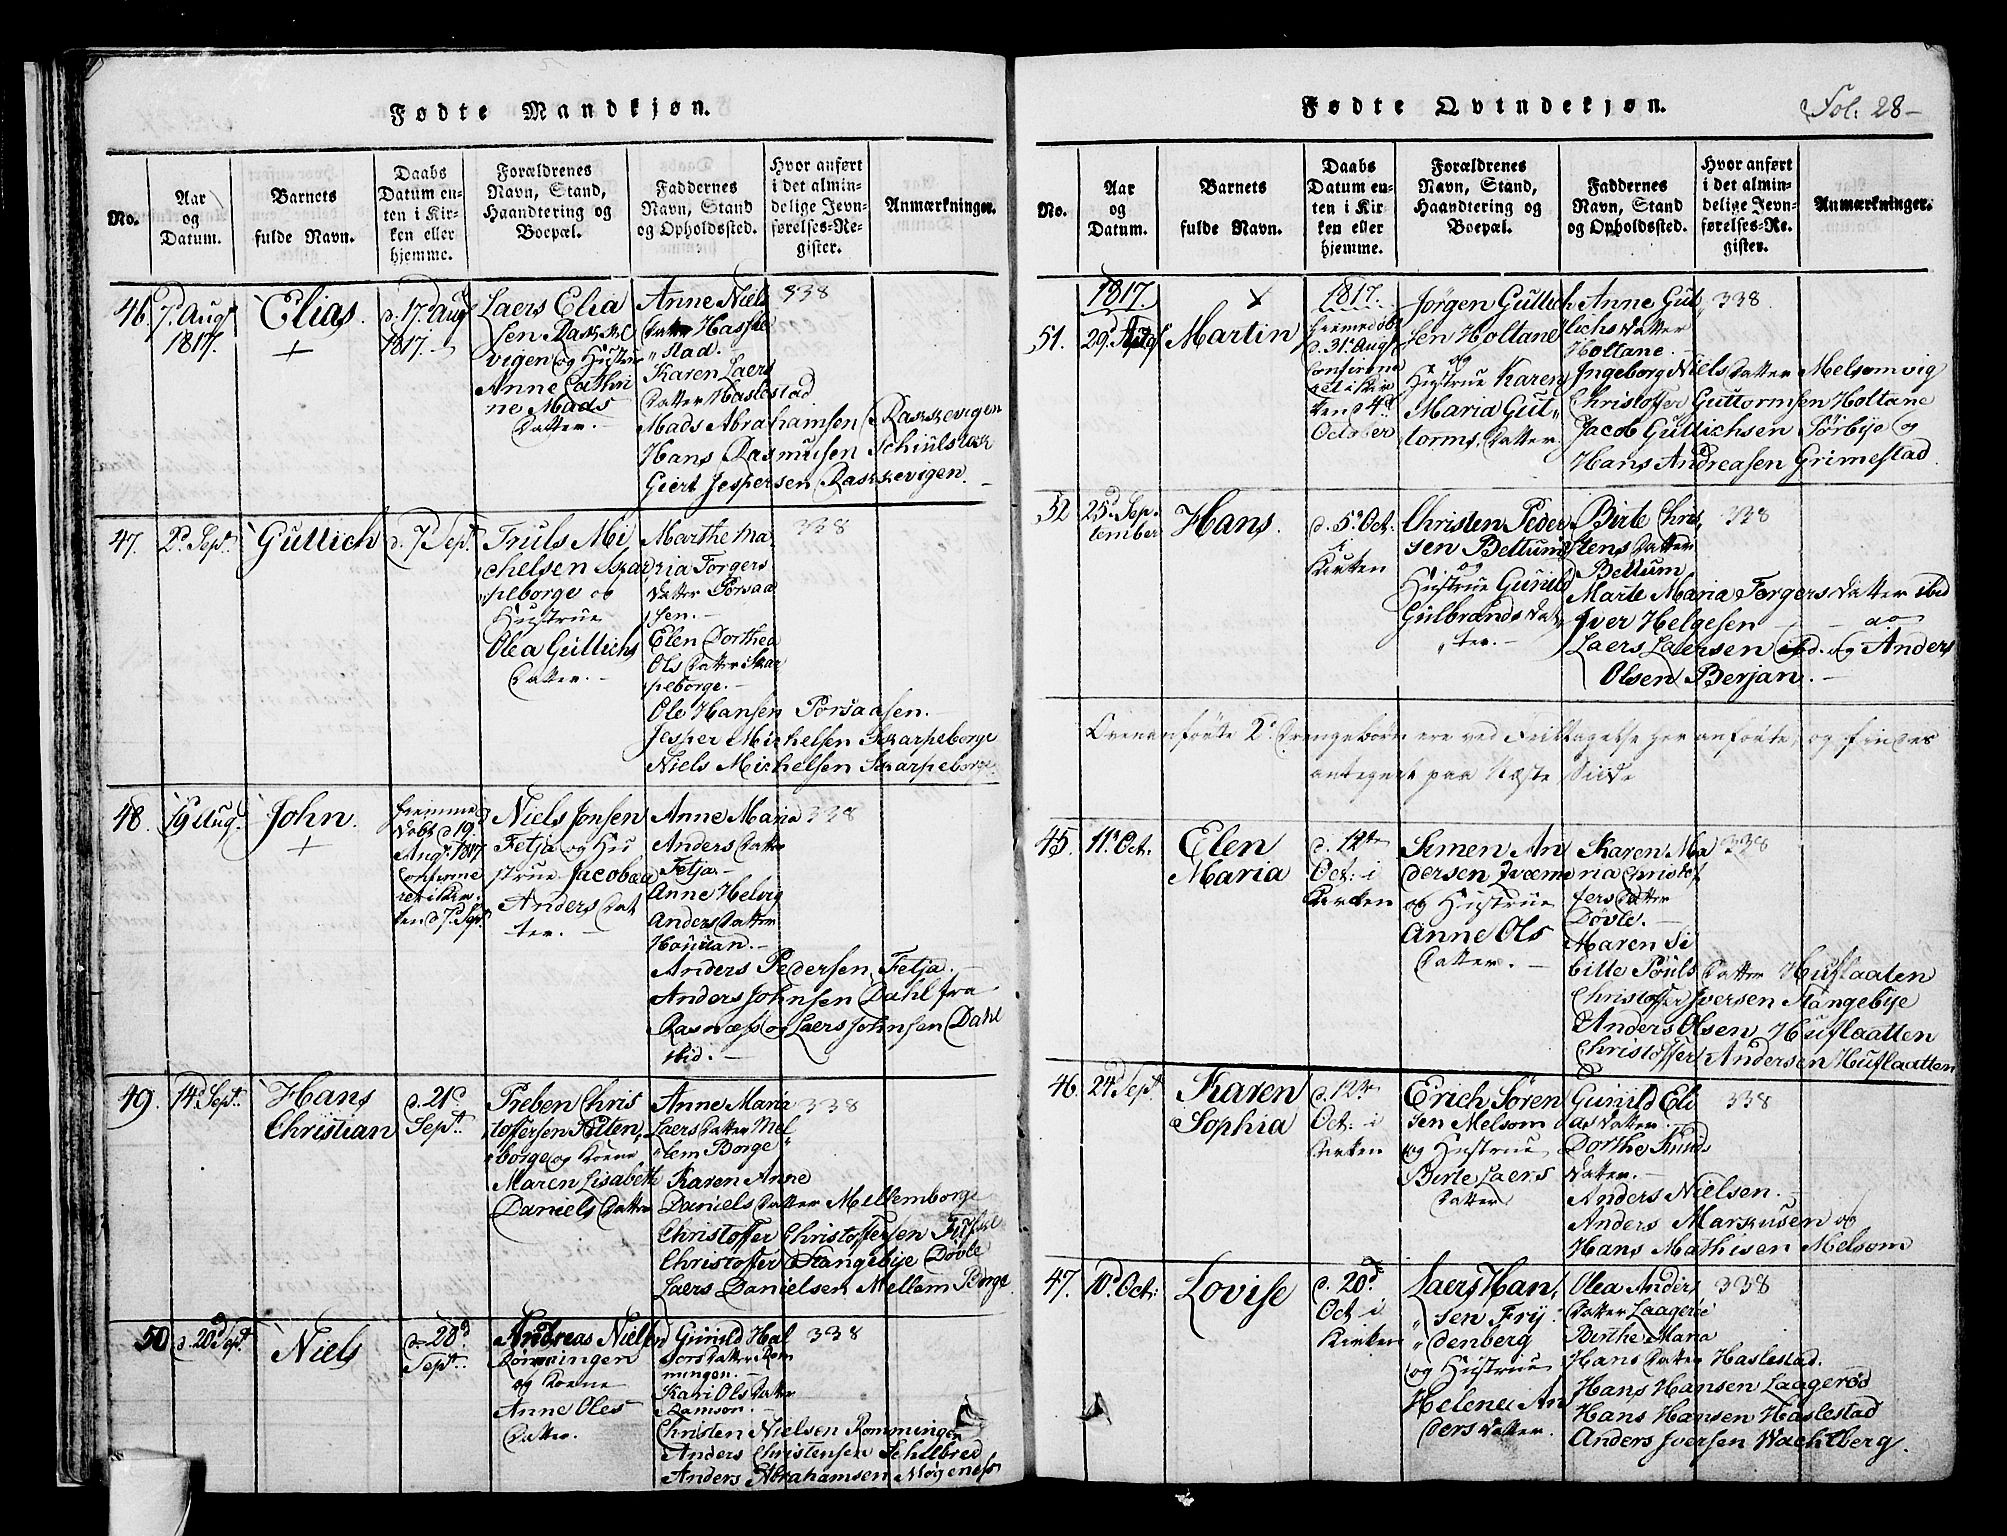 Fødte Mandkjøn.
No.
Aar
og
Datum.
Barnets
fulde Navn.
Daabs
Datum en-
ten i Kir-
ken eller
hjemme.
Forældrenes
Navn, Stand,
Haandtering og
Boepæl.
Faddernes
Navn, Stand
og Opholdssted.
Hvor anført
i det almin-
delige Jevn-
førelses-Re-
gister.
Anmærkninger.
46.
7d. Augs
1817.
Elias.
+
d. 17. Augs
1817.
Laers Elia
sen
vigen og Hustru
Anne Cathri
ne Mads
Datter.
Anne Niels
Datter
stad.
Karen Laers
Datter Haslestad
Mads Abrahamsen Rakkevigen
Hans Rasmusen
Giert Jespersen Rakkevigen.
338
47.
2d. Sept.
Gullich
d. 7 Sept.
Truls Mi
chelsen Skar
peborge og
Hustrue
Olea Gullichs
Datter.
Marthe Ma
ria Torgers
Datter Porsaa
sen.
Elen Dorthea
Ols Datter Skar
peborge.
Ole Hansen Porsaasen.
Jesper Michelsen Skarpeborge
Niels Michelsen Skarpeborge.
338
48.
19 Aug.
John.
+
hiemme
døbt d 19
Aug. 1817
Confirme
ret i Kir
ken d 7d Sept.
Niels Jonsen
Fetja og Hu
strue Jacobaa
Anders Dat
ter.
Anne Maria
Anders Datter
Fetja.
Anne Helvig
Anders Datter
Anders Pedersen Fetja.
Anders Johnsen Dahl fra
Rasnæss og Laers Johnsen Dahl
ibid.
338
49.
14d Sept.
Hans
Christian
d. 21d
Sept.
Preben Chris
toffersen Adlen
borge og Kone
Maren Lisabeth
Daniels Datter
Anne Maria
Laers Datter Mel
lem Borge
Karen Anne
Daniels Datter Mellemborge
Christoffer Christoffersen
Christoffer Stangebye Døvle
Laers Danielsen Mellem Borge.
338
50
d. 20d Sept.
Niels
d. 28d
Sept.
Andreas Nielsen
Rømmingen
og Kone
Anne Oles
Datter.
Gunild Hal
vors Datter Rom
mingen.
Kari Ols Datter
Ramson.
Christen Nielsen Rommingen
Anders Christensen Schelbred
Anders Abrahamsen Møgeness
338
Fødte Qvindekjøn.
Fol: 28
No.
Aar
og
Datum.
Barnets
fulde Navn.
Daabs
Datum en-
ten i Kir-
ken eller
hjemme.
Forældrenes
Navn, Stand,
Haandtering og
Boepæl.
Faddernes
Navn, Stand
og Opholdssted.
Hvor anført
i det almin-
delige Jevn-
førelses-Re-
gister.
Anmærkninger.
51.
1817.
29. Augs
Martin
1817.
hiemmedøbt
d. 31. Augs
Confirme
ret i Kir
ken d 4d
October
Jørgen Gullich
sen Holtane
og
Hustrue Karen
Maria Gut
torms Datter.
Anne Gul
lichs Datter
Holtane.
Ingeborg Niels Datter Melsomvig
Christoffer Guttormsen Holtane
Jacob Gullichsen Sørbye og
Hans Andreasen Grimestad
338.
52
25d. Sep-
tember
Hans.
d. 5. Oct.
i
Kirken
Christen Peder
sen Bettum
og
Hustrue Gunild
Gulbrands Dat
ter.
Birte Chris
tens Datter
Bettum.
Marte Maria Torgers Datter ibid
Jver Helgesen - - ao
Laers Laersen ibd. og Anders
Olsen Berjan.
338
Ovenanførte 2de Drengebørn ere ved Feiltagelse her anførte, og findes
antegnet paa Næste Siide
45.
11. Oct.
Elen
Maria
d. 12te
Oct: i
Kirken
Simen An
dersen
og Hustrue
Anne Ols
Datter.
Karen Ma
ria Christof
fers Datter
Døvle.
Maren Si
bille Pouls Datter Huflaaten
Christoffer Jversen Stangebye
Anders Olsen Huflaatten
Christoffer Andersen Huflaatten
338
46.
24 Sept.
Karen
Sophia
d. 12te
Oct: i
Kirken
Erich Søren
sen Melsom
og Hustrue
Birte Laers
Datter
Gunild Eli
as Datter.
Dorthe Knuds
Datter.
Anders Nielsen.
Anders Markusen og
Hans Mathisen Melsom
338
47.
10d Oct:
Lovise
d. 20d
Oct: i
Kirken
Laers Han
sen Fry
denberg
og Hustrue
Helene An
ders Datter.
Olea Anders
Datter Laagerøe
Birthe Maria
Hans Datter Haslestad.
Hans Hansen Laagerød
Hans Hansen Haslestad
Anders Jversen Wachlberg.
338